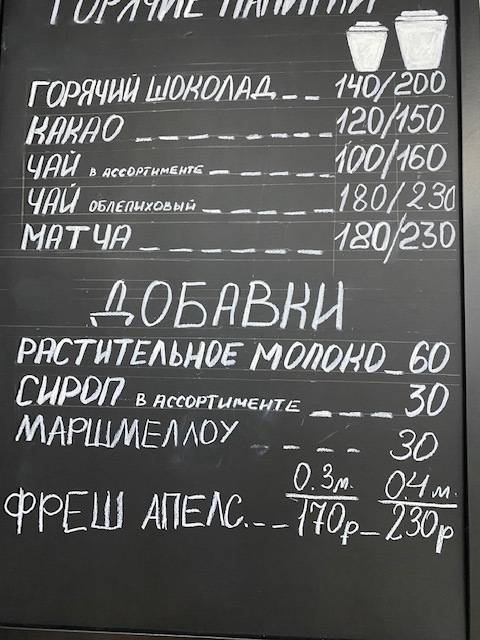 ГОРЯЧИЕ НАПИТКИ
ГОРЯЧИЙ ШОКОЛАД__140/200
КАКАО______120/150
ЧАЙ В АССОРТИМЕНТЕ____100/160
ЧАЙ ОБЛЕПИХОВЫЙ____180/230
МАТЧА______180/230
ДОБАВКИ
РАСТИТЕЛЬНОЕ МОЛОКО_60
СИРОП В АССОРТИМЕНТЕ___30
МАРШМЕЛЛОУ----30
0.3м. 0.4м.
ФРЕШ АПЕЛС.---170р_230р